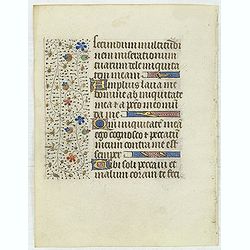 secundum multitudi
nem miserationum
tuarum dele iniquita
tem meam
Amplius laua me
domine ab iniquitate
mea & a peccato meo mun
da me
iniquitatē meā
ego cognosco & peccatū
meum contra me est
semper
Tibi soli peccaui et
malum coram te feci